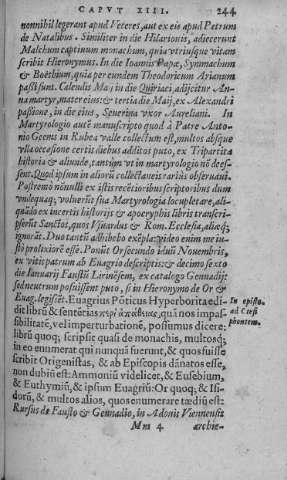 CAPVT XIII. 244
nonnihil legerant apud Veteres, aut ex eis apud Petrum
de Natalibus. Similiter in die Hilarionis, adiecerunt
Malchum captiuum monachum, quia vtriusque vitam
scribit Hieronymus. In die Ioannis Papæ, Symmachum
& Boëthium, quia per eundem Theodoricum Arianum
passi sunt. Calendis Maij in die Quiriaci, adijcitur An-
na martyr, mater eius: & tertia die Maij, ex Alexandri
passione, in die eius, Seuerina vxor Aureliani. In
Martyrologio autē manuscripto quod à Patre Anto-
nio Geenti in Rubea valle collectum est, multos absque
vlla occasione certis diebus additos puto, ex Tripartita
historia & aliunde, tantùm vt in martyrologio nō dees-
sent. Quod ipsum in aliorū collectaneis rariùs obseruaui.
Postremò nonnulli ex istis recētioribus scriptoribus dum
vndequaq; voluerūt sua Martyrologia locupletare, ali-
quādo ex incertis historijs & apocryphis libris transcri-
pserūt Sanctos, quos Vsuardus & Rom. Ecclesia, aliæq;
ignorāt. Duo tantū adhibebo exēpla: video enim me iu-
sto prolixiorē esse. Ponūt Or secundo idūs Nouembris,
ex vitis patrum ab Euagrio descriptis: & decimo sexto
die Ianuarij Faustū Lirinēsem, ex catalogo Gennadij:
sed neutrum posuissent puto, si in Hieronymo de Or &
Euag. legissēt. Euagrius Pōticus Hyperborita edi-
dit librū & sentētias περὶ ἀπαθείας, quā nos impas-
sibilitatē, vel imperturbationē, possumus dicere:
librū quoq; scripsit quasi de monachis, multosq;
in eo enumerat qui nunquā fuerunt, & quos fuisse
scribit Origenistas, & ab Episcopis dānatos esse,
non dubiū est: Ammoniū videlicet, & Eusebium,
& Euthymiū, & ipsum Euagriū: Or quoq; & Isi-
dorū, & multos alios, quos enumerare tædiū est.
Rursus de Fausto & Gennadio, in Adonis Viennensis
In episto.
ad Ctesi
phontem.
Mm 4 archie-